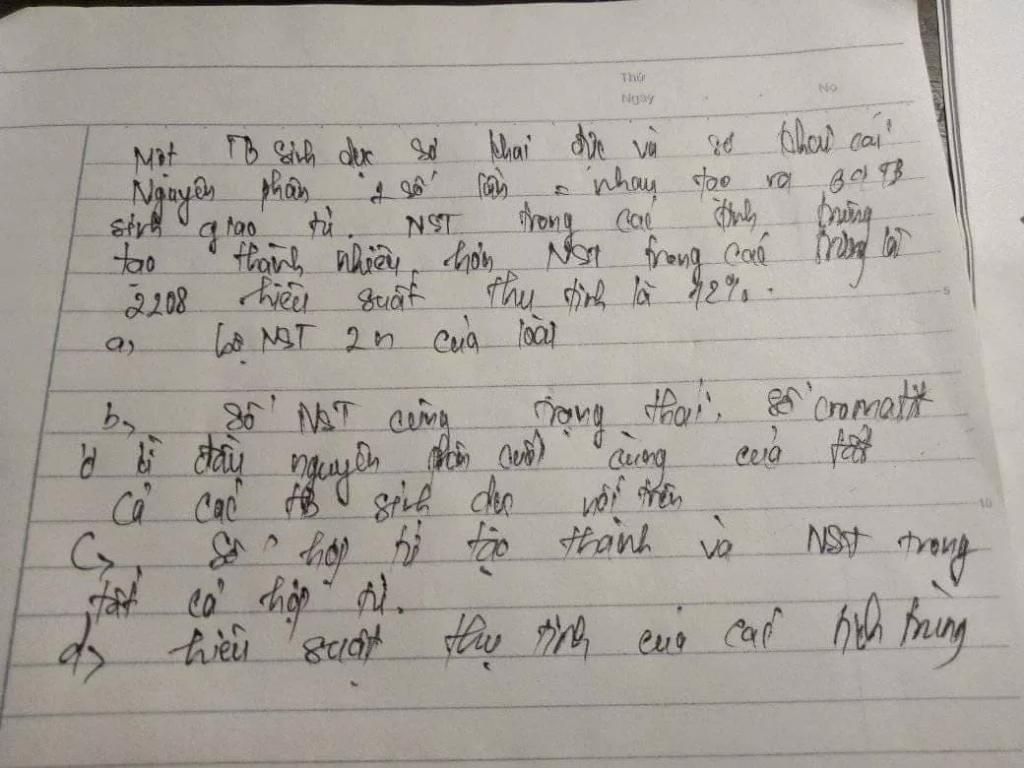 Thứ
Ngày No
Một TB sinh dục sơ khai đực và sơ khai cái
Nguyên phân 1 số lần = nhau tạo ra TB
sinh giao tử. NST trong các tinh trùng
tạo thành nhiều hơn NST trong các trứng là
2208 hiệu suất thụ tinh là %.
a, bộ NST 2n của loài
5
b, Số NST cùng trạng thái. Số cromatit
ở kì đầu nguyên phân cuối cùng của tất
cả các TB sinh dục nói trên
10
c, Số hợp tử tạo thành và NST trong
tất cả hợp tử.
d, hiệu suất thụ tinh của các tinh trùng